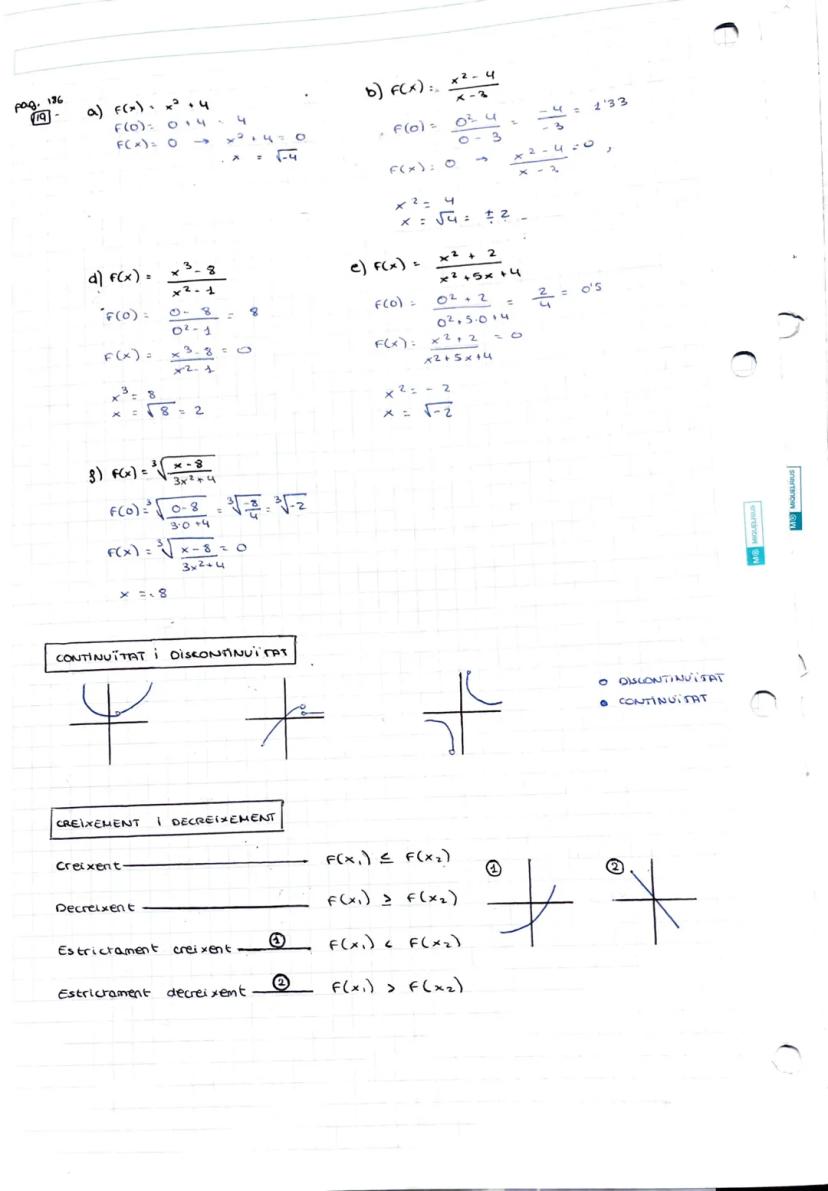 pag. 186
19 -
a) F(x) = x² + 4
F(0) = 0 + 4 = 4
F(x) = 0 → x² + 4 = 0
x = √-4
b) F(x) = (x² - 4)/(x - 3)
F(0) = (0² - 4)/(0 - 3) = -4/-3 = 1'33
F(x) = 0 → (x² - 4)/(x - 3) = 0,
x² = 4
x = √4 = ± 2
d) F(x) = (x³ - 8)/(x² - 1)
F(0) = (0 - 8)/(0² - 1) = 8
F(x) = (x³ - 8)/(x² - 1) = 0
x³ = 8
x = √8 = 2
e) F(x) = (x² + 2)/(x² + 5x + 4)
F(0) = (0² + 2)/(0² + 5·0 + 4) = 2/4 = 0'5
F(x) = (x² + 2)/(x² + 5x + 4) = 0
x² = - 2
x = √-2
f) F(x) = ³√((x - 8)/(3x² + 4))
F(0) = ³√((0 - 8)/(3·0 + 4)) = ³√(-8/4) = ³√-2
F(x) = ³√((x - 8)/(3x² + 4)) = 0
x = 8
CONTINUÏTAT i DISCONTINUÏTAT
o DISCONTINUÏTAT
• CONTINUÏTAT
CREIXEMENT i DECREIXEMENT
Creixent F(x₁) ≤ F(x₂)
Decreixent F(x₁) ≥ F(x₂)
Estrictament creixent ① F(x₁) < F(x₂)
Estrictament decreixent ② F(x₁) > F(x₂)
①
②
MIQUELRIUS
MIQUELRIUS